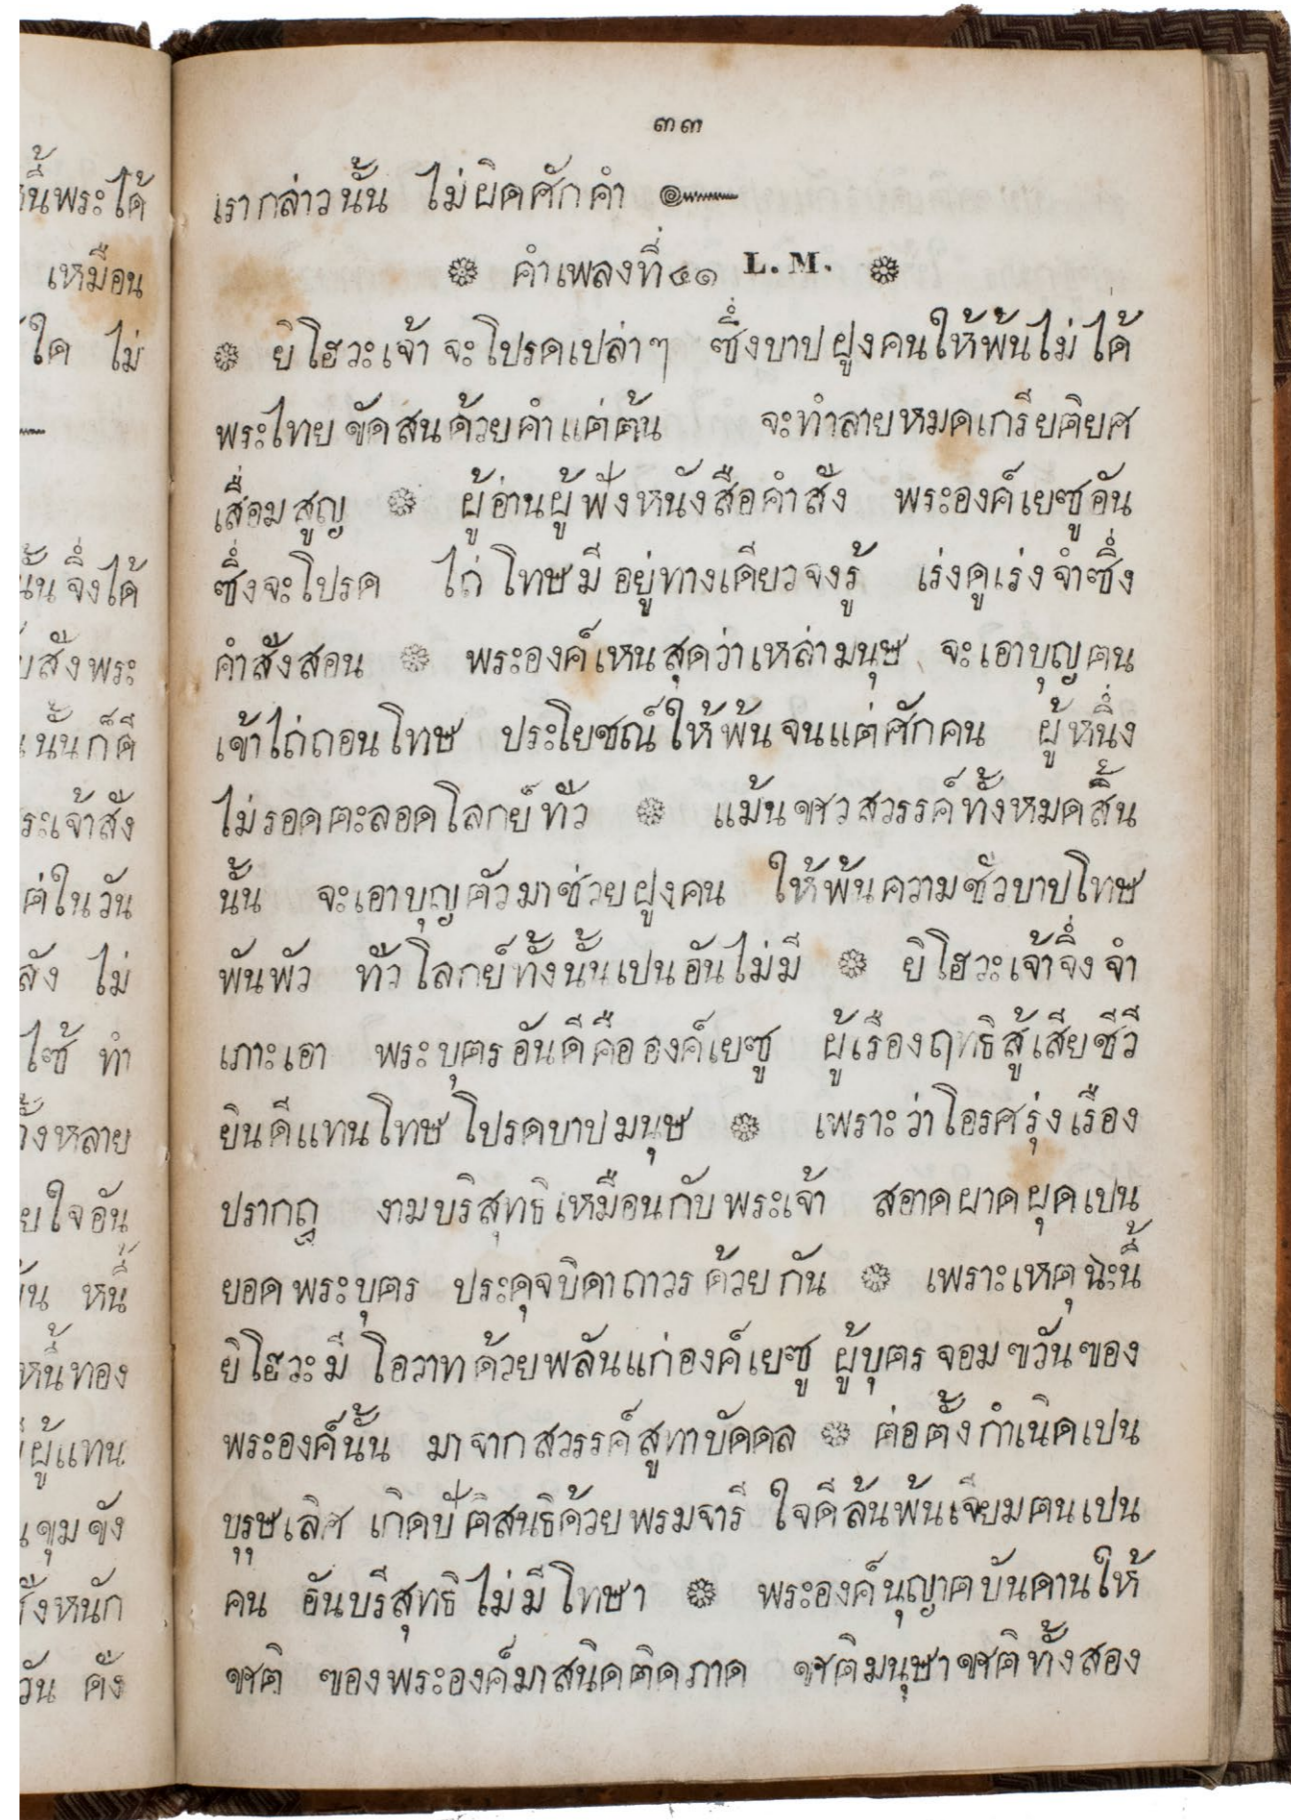 ๓๓
เรากล่าวนั้น ไม่ผิดศักคำ ๛
คำเพลงที่ ๔๑ L. M.
ยิโฮวะเจ้าจะโปรดเปล่าๆ ซึ่งบาปฝูงคนให้พ้นไม่ได้
พระไทยขัดสนด้วยคำแต่ต้น จะทำลายหมดเกรียติยศ
เสื่อมสูญ ผู้อ่านผู้ฟังหนังสือคำสั่ง พระองค์เยซูอัน
ซึ่งจะโปรด ไถ่โทษมีอยู่ทางเดียวจงรู้ เร่งดูเร่งจำซึ่ง
คำสั่งสอน พระองค์เหนสุดว่าเหล่ามนุษ จะเอาบุญตน
เข้าไถ่ถอนโทษ ประโยชณ์ให้พ้นจนแต่ศักคน ผู้หนึ่ง
ไม่รอดตะลอดโลกย์ทั่ว แม้นชาวสวรรค์ทั้งหมดสิ้น
นั้น จะเอาบุญตัวมาช่วยฝูงคน ให้พ้นความชั่วบาปโทษ
พันพัว ทั่วโลกย์ทั้งนั้นเปนอันไม่มี ยิโฮวะเจ้าจึ่งจำ
เภาะเอา พระบุตรอันดีคือองค์เยซู ผู้เรืองฤทธิสู้เสียชีวี
ยินดีแทนโทษโปรดบาปมนุษ เพราะว่าโอรศรุ่งเรือง
ปรากฏ งามบริสุทธิเหมือนกับพระเจ้า สอาดผาดผุดเปน
ยอดพระบุตร ประดุจบิดาถาวรด้วยกัน เพราะเหตุฉะนี้
ยิโฮวะมี โอวาทด้วยพลันแก่องค์เยซู ผู้บุตรจอมขวันของ
พระองค์นั้น มาจากสวรรค์สูทาบัดดล ต่อตั้งกำเนิดเปน
บุรุษเลิศ เกิดปัติสนธิด้วยพรมจารี ใจดีล้นพ้นเจียมตนเปน
คน อันบรีสุทธิไม่มีโทษา พระองค์นุญาตบันดานให้
ชาติ ของพระองค์มาสนิดติดภาด ชาติมนุษาชาติทั้งสอง